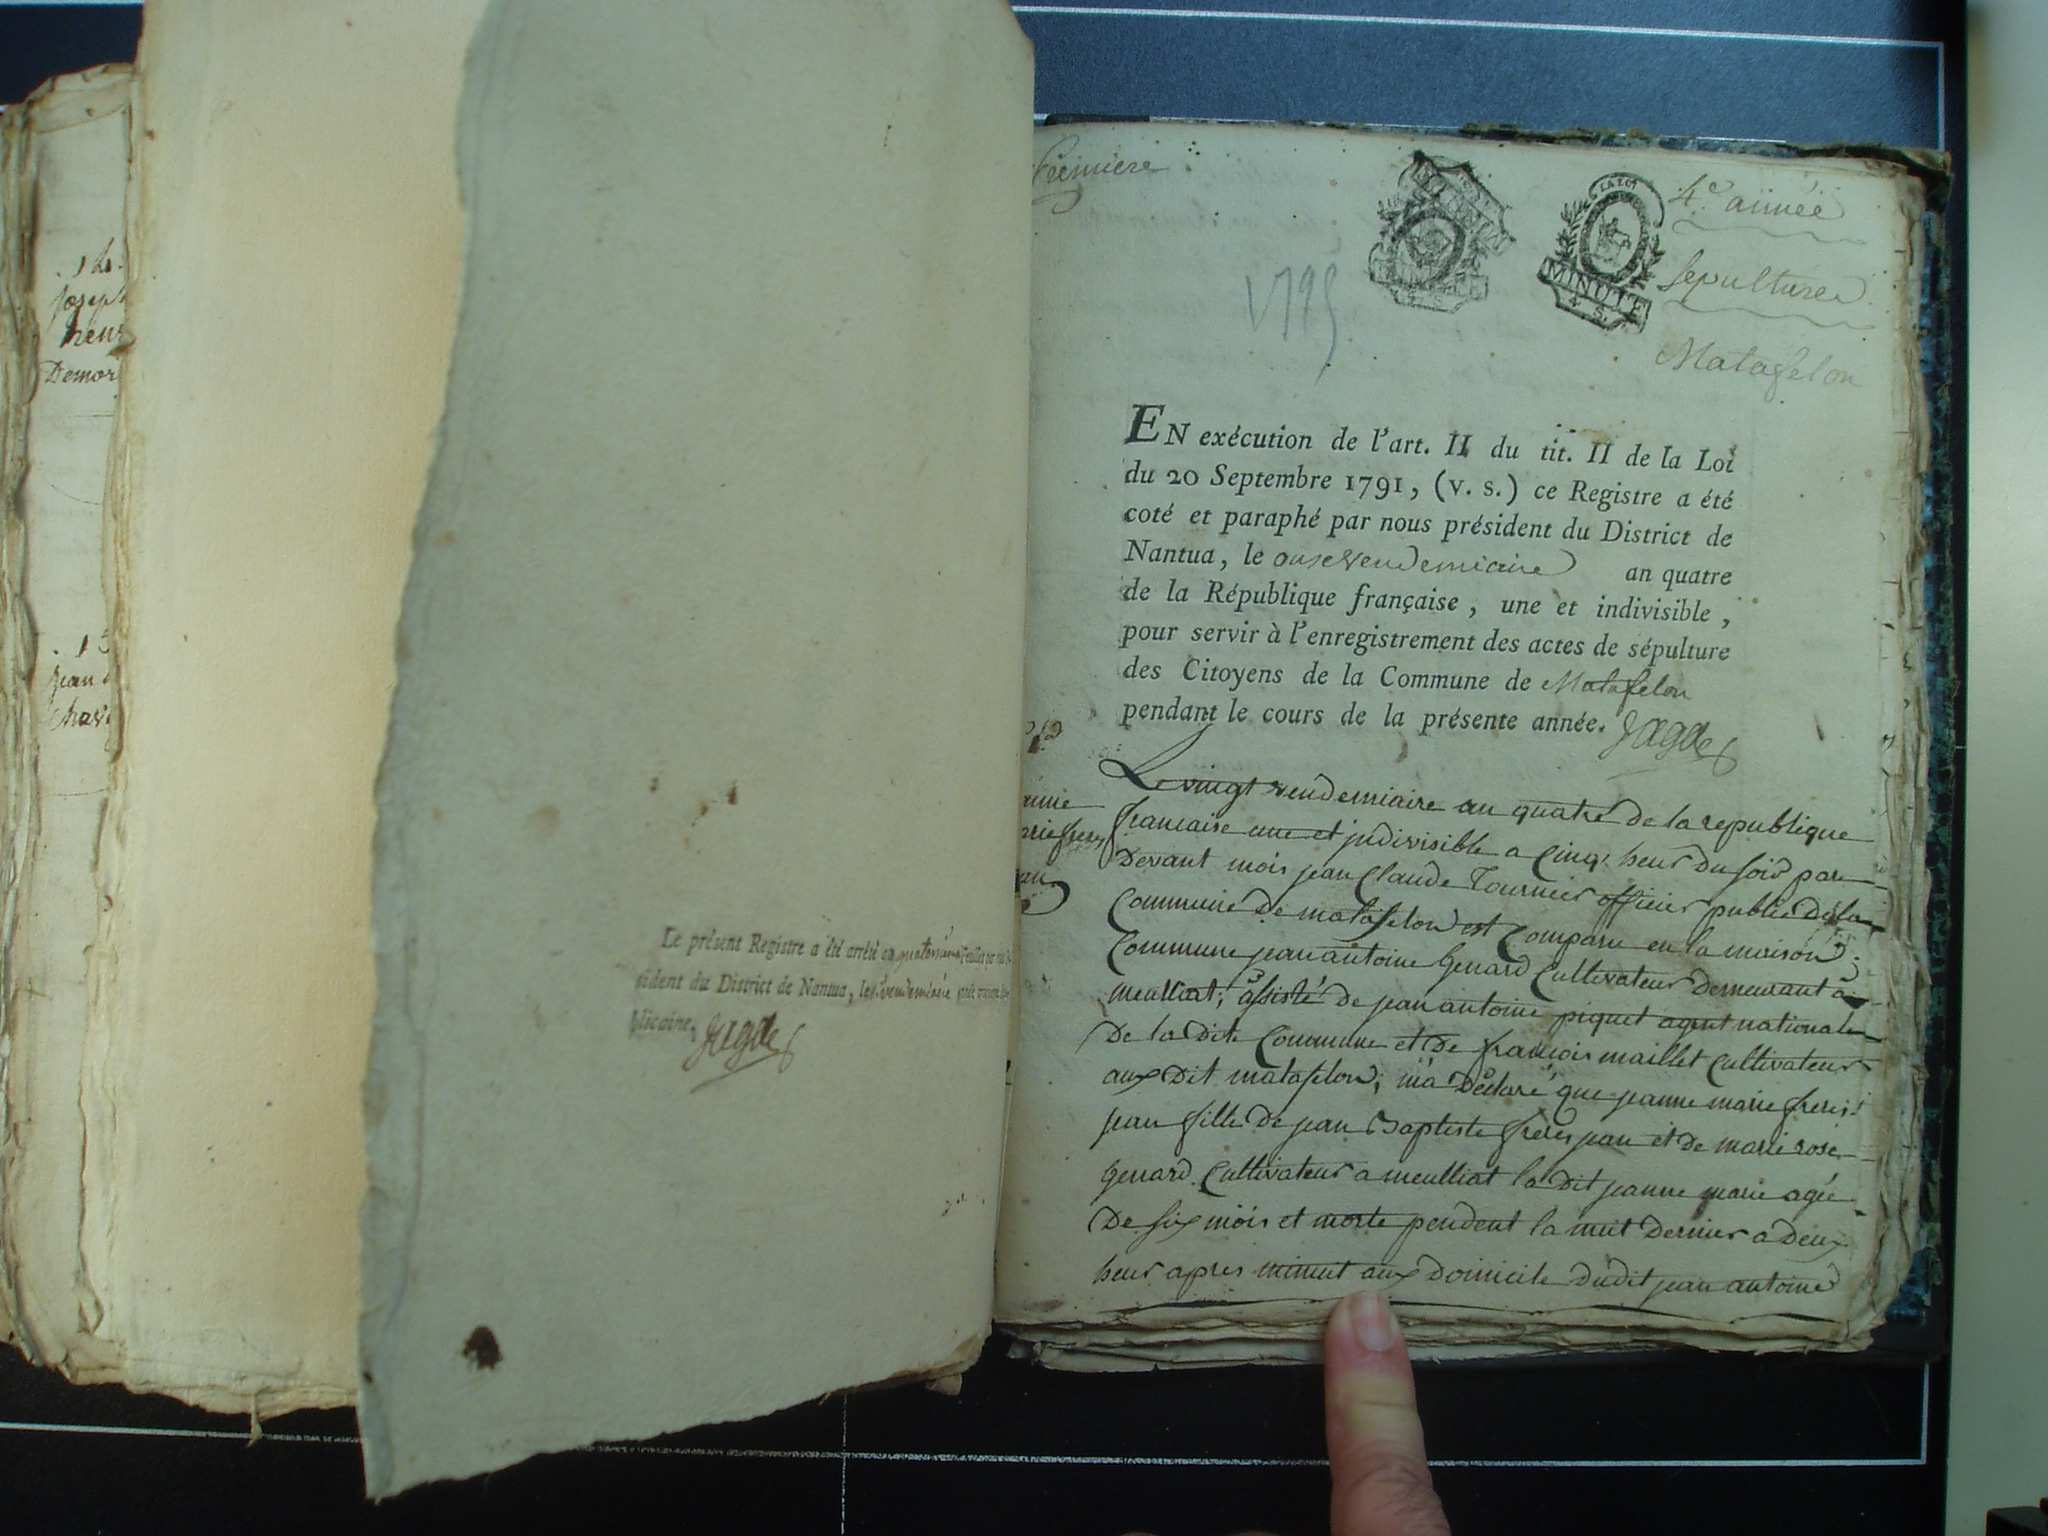 . 14.
Joseph
Demor
. 15
jean
chav
Le présent Registre a été arrêté
sident du District de Nantua, le vendemiaire
blicaine, Jagde
Premiere
4e. année
1795
LA LOI
MINUTE
4. S.
sepulture
Matafelon
EN exécution de l'art. II du tit. II de la Loi
du 20 Septembre 1791, (v. s.) ce Registre a été
coté et paraphé par nous président du District de
Nantua, le onse vendemiaire an quatre
de la République française, une et indivisible,
pour servir à l'enregistrement des actes de sépulture
des Citoyens de la Commune de Matafelon
pendant le cours de la présente année. Jagde
Le vingt vendemiaire an quatre de la republique
francaise une et jndivisible a cinq heur du soir par
Devant mois jean Claude Tournier officier public de la
Commune de matafelon est comparu en la maison
Commune jean antoine Genard Cultivateur demeurant a
meulliat, assisté de jean antoine piquet agent national
De la dite Commune et de francois maillet cultivateur
aux dit matafelon; m'a declaré que jeanne marie frere
jean fille de jean Baptiste freres jean et de marie rose
Genard Cultivateur a meulliat la dit jeanne marie agée
De six mois et morte pendent la nuit dernier a deux
heur apres minuit aux domicile dudit jean antoine